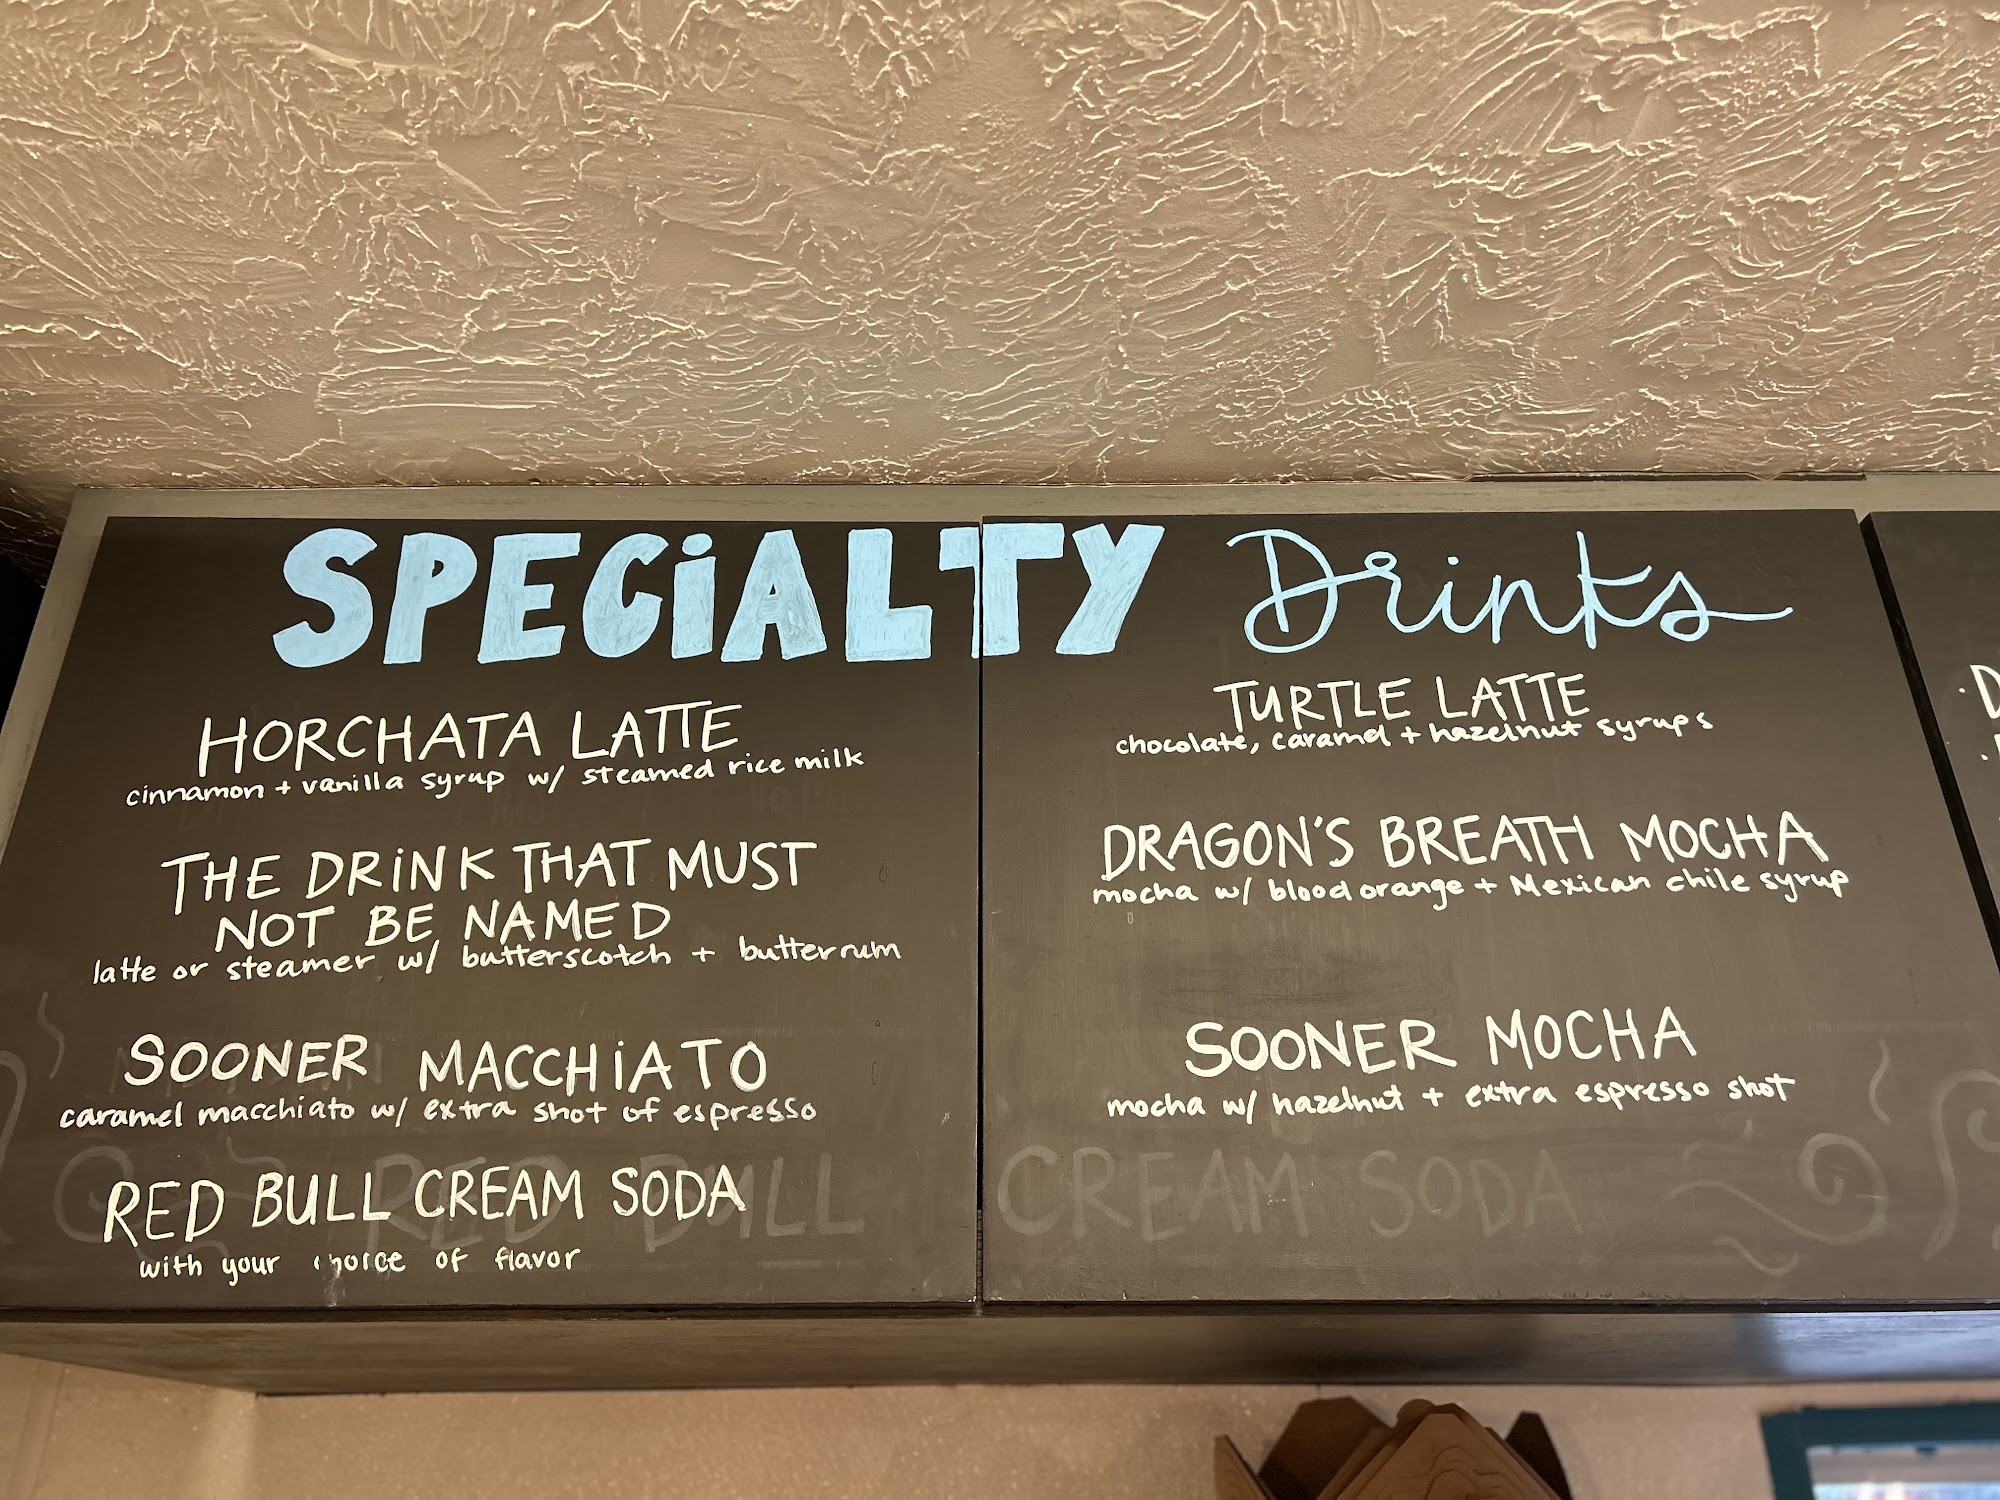 SPECiALTY Drinks
HORCHATA LATTE
cinnamon + vanilla syrup w/ steamed rice milk
THE DRiNK THAT MUST
NOT BE NAMED
latte or steamer w/ butterscotch + butter rum
SOONER MACCHiATO
caramel macchiato w/ extra shot of espresso
RED BULL CREAM SODA
with your choice of flavor
TURTLE LATTE
chocolate, caramel + hazelnut syrups
DRAGON'S BREATH MOCHA
mocha w/ blood orange + Mexican chile syrup
SOONER MOCHA
mocha w/ hazelnut + extra espresso shot
RED BULL CREAM SODA